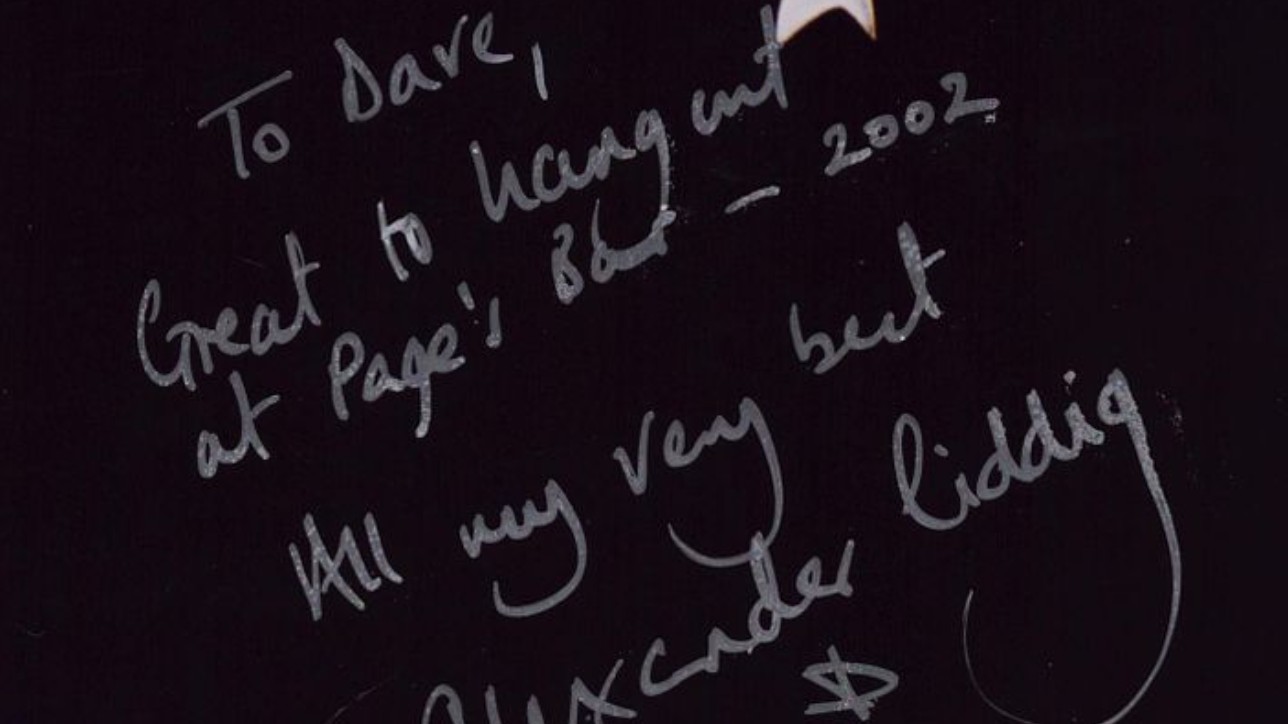 To Dave,
Great to hang out
at Page's Bar - 2002
All my very best
Alexander Siddig